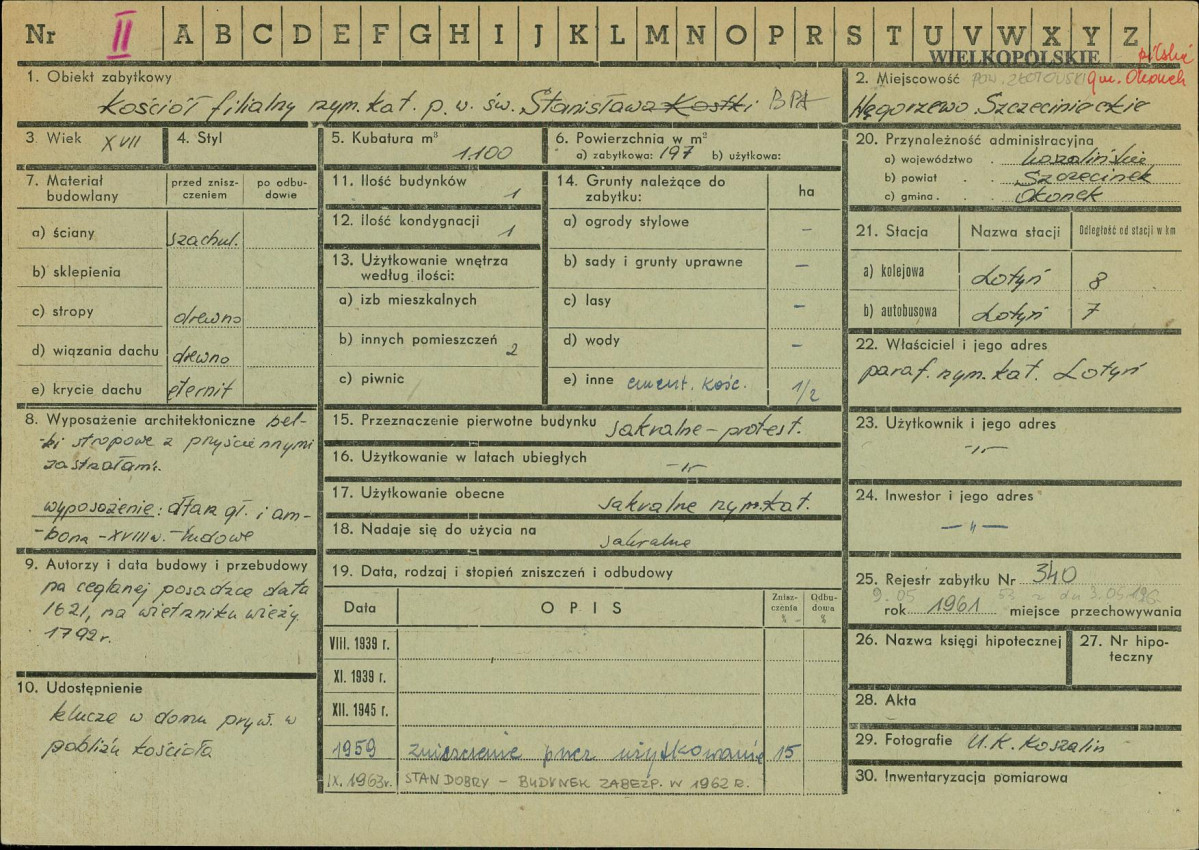 Nr II A B C D E F G H I J K L M N O P R S T U V W X Y Z
WIELKOPOLSKIE
1. Obiekt zabytkowy
kościół filialny rzym. kat. p. w. św. Stanisława Kostki BPA
2. Miejscowość
gm. Okonek
Węgorzewo Szczecineckie
3. Wiek XVII
4. Styl
5. Kubatura m³
1.100
6. Powierzchnia w m²
a) zabytkowa: 197 b) użytkowa:
7. Materiał budowlany
przed zniszczeniem
po odbudowie
a) ściany szachul.
b) sklepienia
c) stropy drewno
d) wiązania dachu drewno
e) krycie dachu eternit
8. Wyposażenie architektoniczne bel-
ki stropowe z przyściennymi
zastrzałami.
wyposażenie: ołtarz gł. i am-
-bona - XVIII w. - ludowe
9. Autorzy i data budowy i przebudowy
na ceglanej posadzce data
1621, na wietrzniku wieży
1792 r.
10. Udostępnienie
klucze w domu pryw. w
pobliżu kościoła
11. Ilość budynków
1
12. Ilość kondygnacji
1
13. Użytkowanie wnętrza
według ilości:
a) izb mieszkalnych
b) innych pomieszczeń
2
c) piwnic
14. Grunty należące do
zabytku:
ha
a) ogrody stylowe –
b) sady i grunty uprawne –
c) lasy –
d) wody –
e) inne cment. kośc. 1/2
15. Przeznaczenie pierwotne budynku sakralne - protest.
16. Użytkowanie w latach ubiegłych -„-
17. Użytkowanie obecne sakralne rzym.kat.
18. Nadaje się do użycia na sakralne
19. Data, rodzaj i stopień zniszczeń i odbudowy
Data
OPIS
Zniszczenia %
Odbudowa %
VIII. 1939 r.
XI. 1939 r.
XII. 1945 r.
1959 zniszczenie przez użytkowanie 15
IX. 1963r. STAN DOBRY - BUDYNEK ZABEZP. W 1962 R.
20. Przynależność administracyjna
a) województwo koszalińskie
b) powiat Szczecinek
c) gmina Okonek
21. Stacja
Nazwa stacji
Odległość od stacji w km
a) kolejowa Lotyń 8
b) autobusowa Lotyń 7
22. Właściciel i jego adres
paraf. rzym. kat. Lotyń
23. Użytkownik i jego adres
-„-
24. Inwestor i jego adres
-„-
25. Rejestr zabytku Nr 340
9.05
rok 1961 miejsce przechowywania
26. Nazwa księgi hipotecznej
27. Nr hipo-
teczny
28. Akta
29. Fotografie U.K. Koszalin
30. Inwentaryzacja pomiarowa